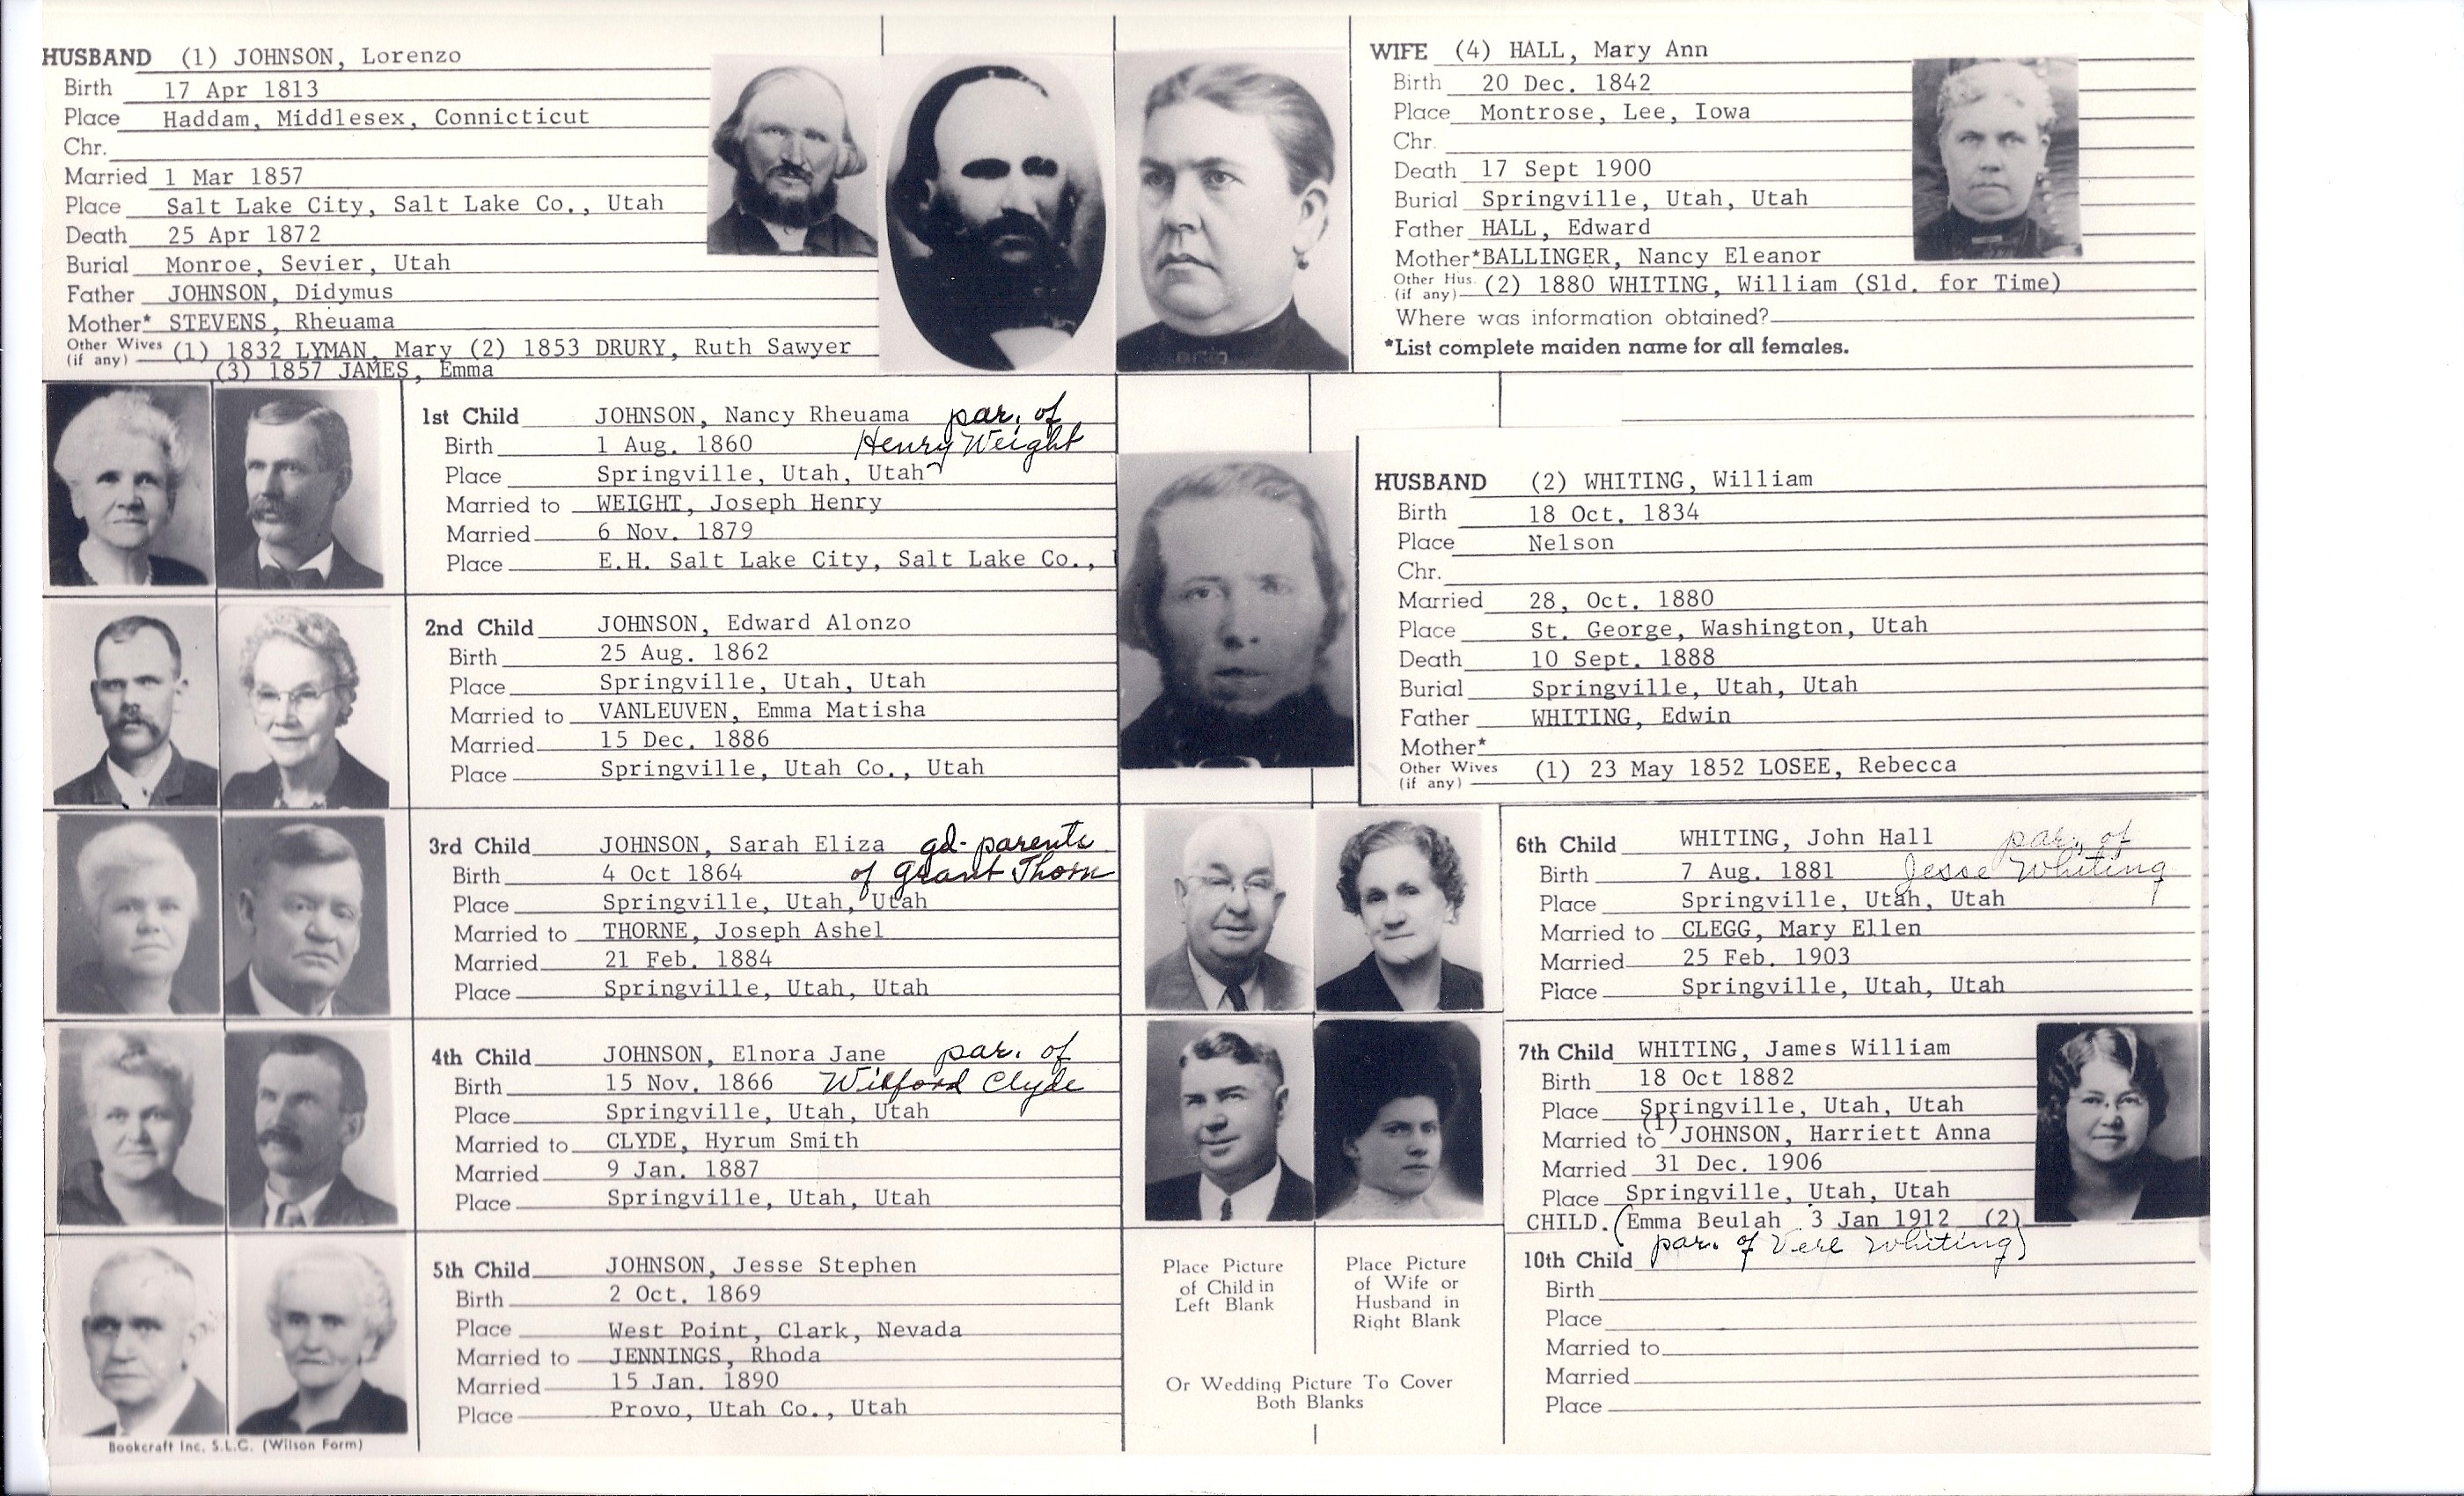 HUSBAND (1) JOHNSON, Lorenzo
Birth 17 Apr 1813
Place Haddam, Middlesex, Connicticut
Chr.
Married 1 Mar 1857
Place Salt Lake City, Salt Lake Co., Utah
Death 25 Apr 1872
Burial Monroe, Sevier, Utah
Father JOHNSON, Didymus
Mother* STEVENS, Rheuama
Other Wives (if any) (1) 1832 LYMAN, Mary (2) 1853 DRURY, Ruth Sawyer
(3) 1857 JAMES, Emma
WIFE (4) HALL, Mary Ann
Birth 20 Dec. 1842
Place Montrose, Lee, Iowa
Chr.
Death 17 Sept 1900
Burial Springville, Utah, Utah
Father HALL, Edward
Mother* BALLINGER, Nancy Eleanor
Other Hus. (if any) (2) 1880 WHITING, William (Sld. for Time)
Where was information obtained?
*List complete maiden name for all females.
1st Child JOHNSON, Nancy Rheuama par. of
Birth 1 Aug. 1860 Henry Weight
Place Springville, Utah, Utah
Married to WEIGHT, Joseph Henry
Married 6 Nov. 1879
Place E.H. Salt Lake City, Salt Lake Co.,
2nd Child JOHNSON, Edward Alonzo
Birth 25 Aug. 1862
Place Springville, Utah, Utah
Married to VANLEUVEN, Emma Matisha
Married 15 Dec. 1886
Place Springville, Utah Co., Utah
3rd Child JOHNSON, Sarah Eliza gd-parents
Birth 4 Oct 1864 of Grant Thorn
Place Springville, Utah, Utah
Married to THORNE, Joseph Ashel
Married 21 Feb. 1884
Place Springville, Utah, Utah
4th Child JOHNSON, Elnora Jane par. of
Birth 15 Nov. 1866 Wilford Clyde
Place Springville, Utah, Utah
Married to CLYDE, Hyrum Smith
Married 9 Jan. 1887
Place Springville, Utah, Utah
5th Child JOHNSON, Jesse Stephen
Birth 2 Oct. 1869
Place West Point, Clark, Nevada
Married to JENNINGS, Rhoda
Married 15 Jan. 1890
Place Provo, Utah Co., Utah
Bookcraft Inc. S.L.C. (Wilson Form)
HUSBAND (2) WHITING, William
Birth 18 Oct. 1834
Place Nelson
Chr.
Married 28, Oct. 1880
Place St. George, Washington, Utah
Death 10 Sept. 1888
Burial Springville, Utah, Utah
Father WHITING, Edwin
Mother*
Other Wives (if any) (1) 23 May 1852 LOSEE, Rebecca
6th Child WHITING, John Hall par. of
Birth 7 Aug. 1881 Jesse Whiting
Place Springville, Utah, Utah
Married to CLEGG, Mary Ellen
Married 25 Feb. 1903
Place Springville, Utah, Utah
7th Child WHITING, James William
Birth 18 Oct 1882
Place Springville, Utah, Utah
Married to (1) JOHNSON, Harriett Anna
Married 31 Dec. 1906
Place Springville, Utah, Utah
CHILD. (Emma Beulah 3 Jan 1912 (2)
par. of Verl Whiting)
10th Child
Birth
Place
Married to
Married
Place
Place Picture
of Child in
Left Blank
Place Picture
of Wife or
Husband in
Right Blank
Or Wedding Picture To Cover
Both Blanks